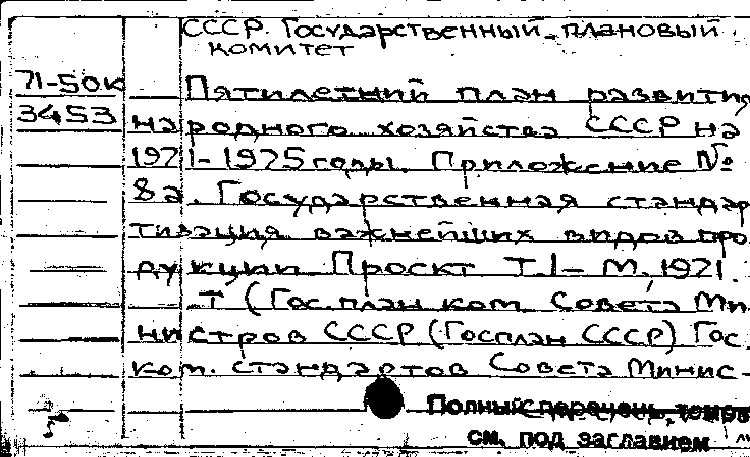 СССР. Государственный плановый
комитет
71-50к Пятилетний план развития
3453 народного хозяйства СССР на
1971-1975 годы. Приложение №
8а. Государственная стандар
тизация важнейших видов про
дукции Проект Т.1- М, 1971.
Т (Гос. план. ком. Совета Ми-
нистров СССР (Госплан СССР) Гос.
ком. стандартов Совета Минис-
Полный перечень
см. под заглавием